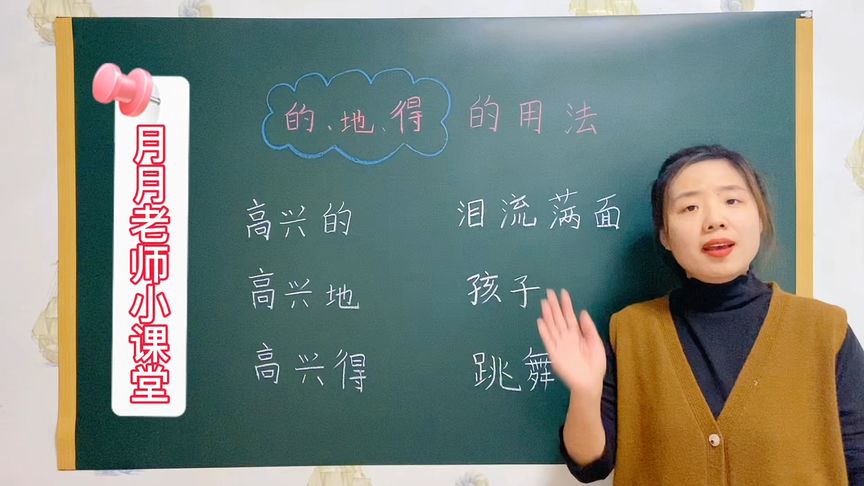 月月老师小课堂
的、地、得 的用法
高兴的 泪流满面
高兴地 孩子
高兴得 跳舞